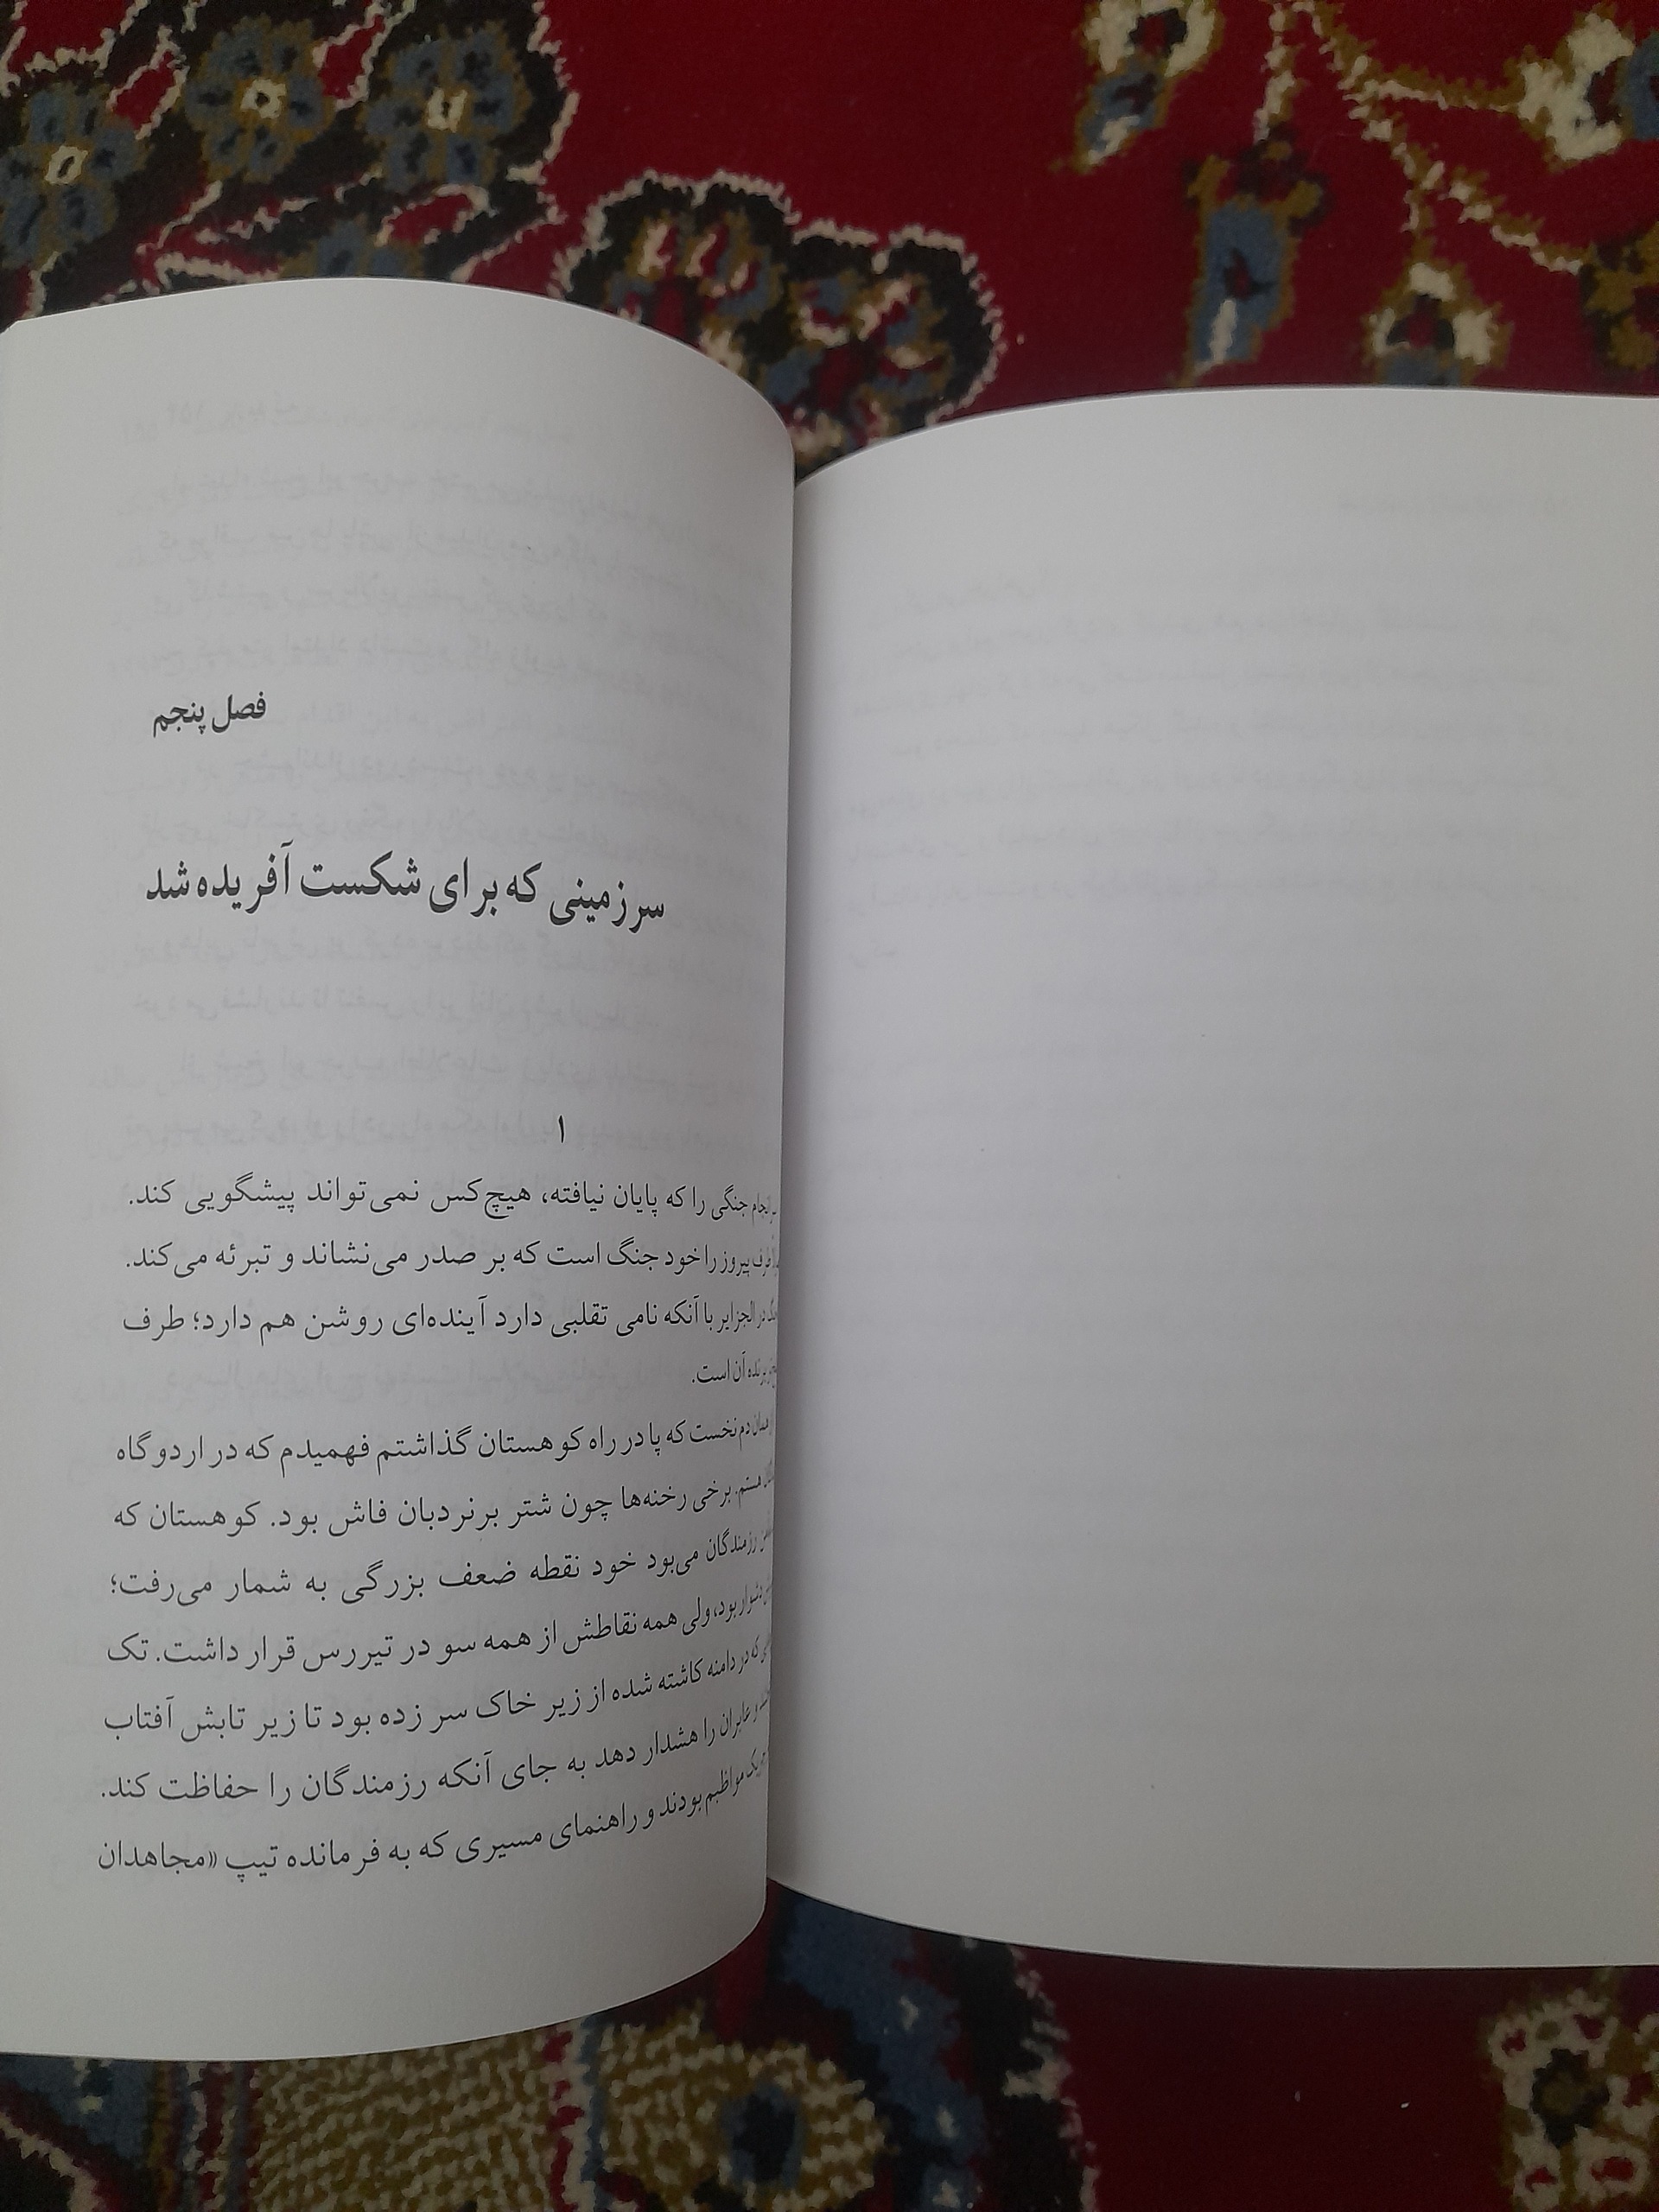 فصل پنجم
سرزمینی که برای شکست آفریده شد
۱
سرانجام جنگی را که پایان نیافته، هیچ‌کس نمی‌تواند پیشگویی کند.
طرف پیروز را خود جنگ است که بر صدر می‌نشاند و تبرئه می‌کند.
در الجزایر با آنکه نامی تقلبی دارد آینده‌ای روشن هم دارد؛ طرف
برنده آن است.
همان دم نخست که پا در راه کوهستان گذاشتم فهمیدم که در اردوگاه
هستم. برخی رخنه‌ها چون شتر بر نردبان فاش بود. کوهستان که
رزمندگان می‌بود خود نقطه ضعف بزرگی به شمار می‌رفت؛
دشوار بود، ولی همه نقاطش از همه سو در تیررس قرار داشت. تک
که در دامنه کاشته شده از زیر خاک سر زده بود تا زیر تابش آفتاب
و عابران را هشدار دهد به جای آنکه رزمندگان را حفاظت کند.
مواظبم بودند و راهنمای مسیری که به فرمانده تیپ «مجاهدان